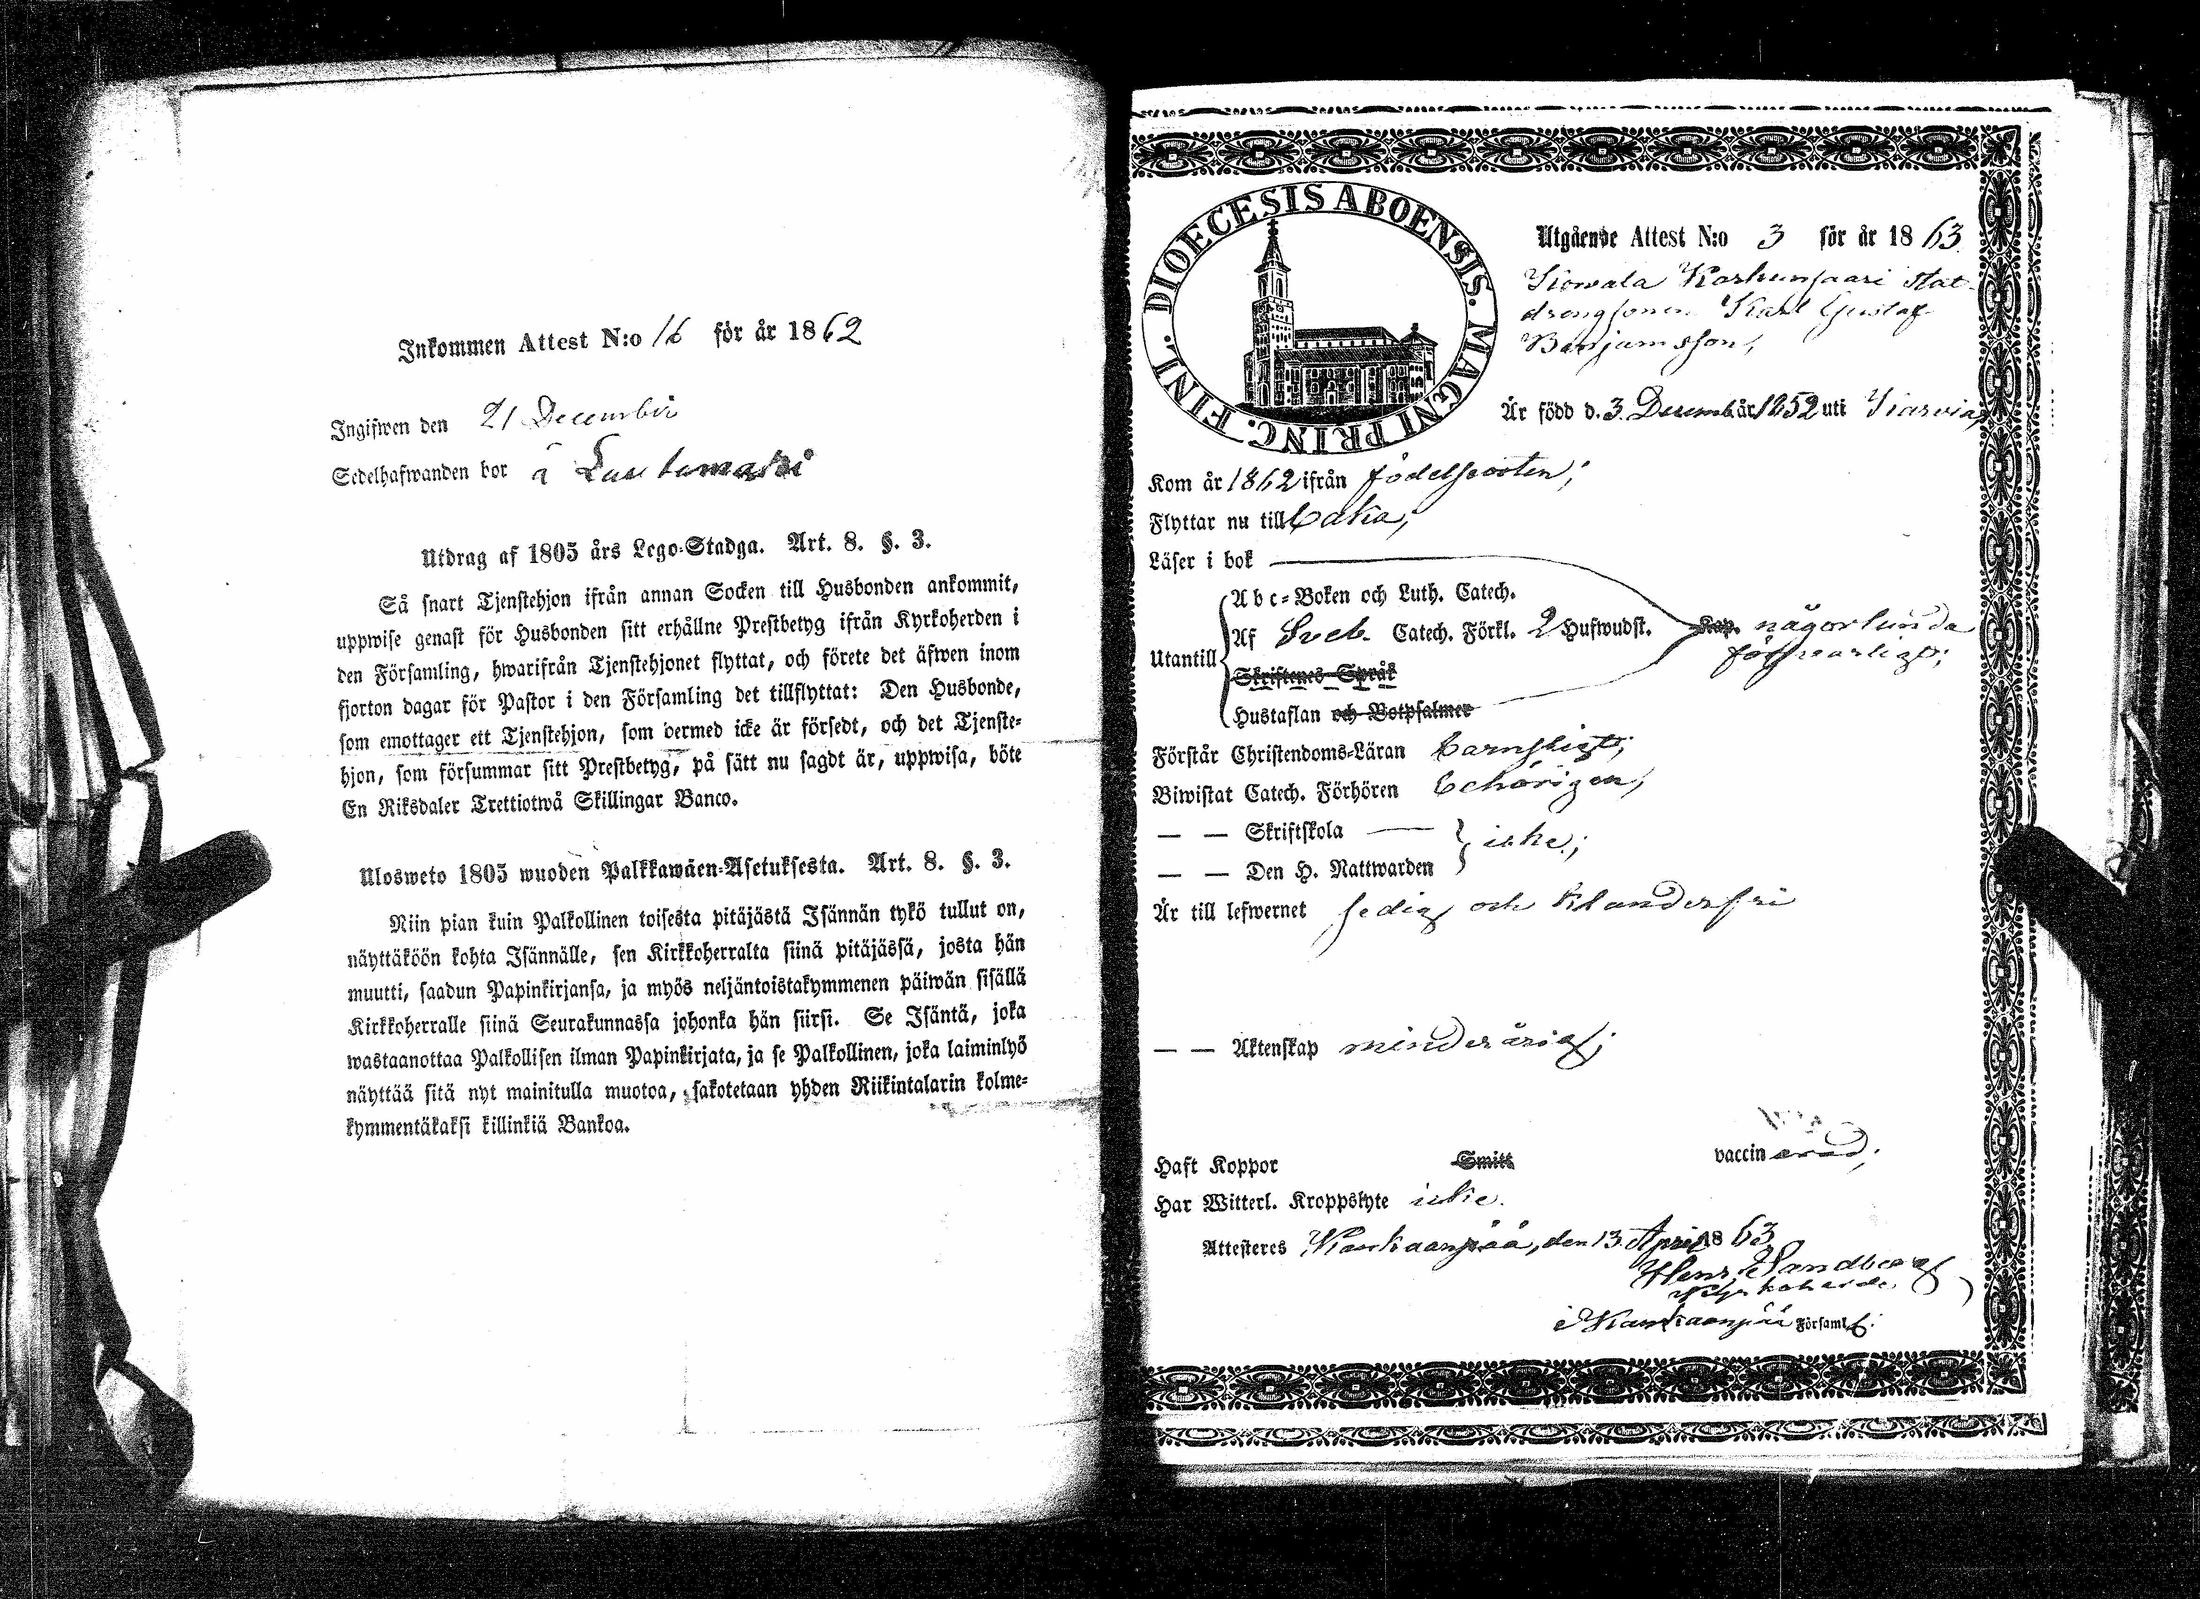 Inkommen Attest N:o 16 för år 1862
Ingifwen den 21 December
Sedelhafwanden bor å
Utdrag af 1805 års Lego-Stadga. Art. 8. §. 3.
Så snart Tjenstehjon ifrån annan Socken till Husbonden ankommit,
uppwise genast för Husbonden sitt erhållne Prestbetyg ifrån Kyrkoherden i
den Församling, hwarifrån Tjenstehjonet flyttat, och förete det äfwen inom
fjorton dagar för Pastor i den Församling det tillflyttat: Den Husbonde,
som emottager ett Tjenstehjon, som dermed icke är försedt, och det Tjenste-
hjon, som försummar sitt Prestbetyg, på sätt nu sagdt är, uppwisa, böte
En Riksdaler Trettiotwå Skillingar Banco.
Ulosweto 1805 wuoden Palkkawäen-Asetuksesta. Art. 8. §. 3.
Niin pian kuin Palkollinen toisesta pitäjästä Isännän tykö tullut on,
näyttäköön kohta Isännälle, sen Kirkkoherralta siinä pitäjässä, josta hän
muutti, saadun Papinkirjansa, ja myös neljäntoistakymmenen päiwän sisällä
Kirkkoherralle siinä Seurakunnassa johonka hän siirsi. Se Isäntä, joka
wastaanottaa Palkollisen ilman Papinkirjata, ja se Palkollinen, joka laiminlyö
näyttää sitä nyt mainitulla muotoa, sakotetaan yhden Riikintalarin kolme-
kymmentäkaksi killinkiä Bankoa.
DIOECESIS ABOENSIS. MAGNI PRINC. FINL.
Utgående Attest N:o 3 för år 1863
Kowala Karhunsaari stat-
drengsonen Karl Gustaf
Benjamsson,
Är född d. 3 Decemb. år 1852 uti
Kom år 1862 ifrån födelseorten;
Flyttar nu till
Läser i bok
Abc-Boken och Luth. Catech.
Utantill Af Sveb. Catech. Förkl. 2 Hufwudst. Kap. någorlunda
försvarligt;
Skriftenes Språk
Hustaflan och Botpsalmer
Förstår Christendoms-Läran barnsligt;
Biwistat Catech. Förhören behörigen;
— — Skriftskola — icke;
— — Den H. Nattwarden
Är till lefwernet sedig och klanderfri
— — Äktenskap minderårig;
Haft Koppor Smitt vaccinerad;
Har Witterl. Kroppslyte icke.
Attesteres Kankaanpää, den 13 April 1863
Henr. Sandberg
Kyrkoherde
i Kankaanpää Församl.